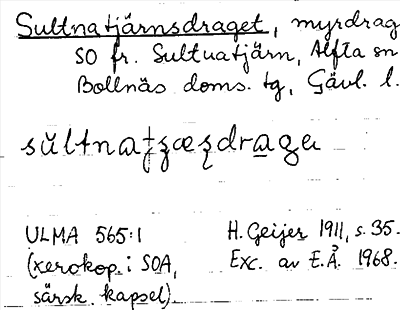 Sultnatjärnsdraget, myrdrag
SO fr. Sultuatjärn, Alfta sn
Bollnäs doms. tg, Gävl. l.
ULMA 565:1
(xerokop. i SOA,
särsk. kapsel)
H. Geijer 1911, s. 35.
Exc. av E.Å. 1968.